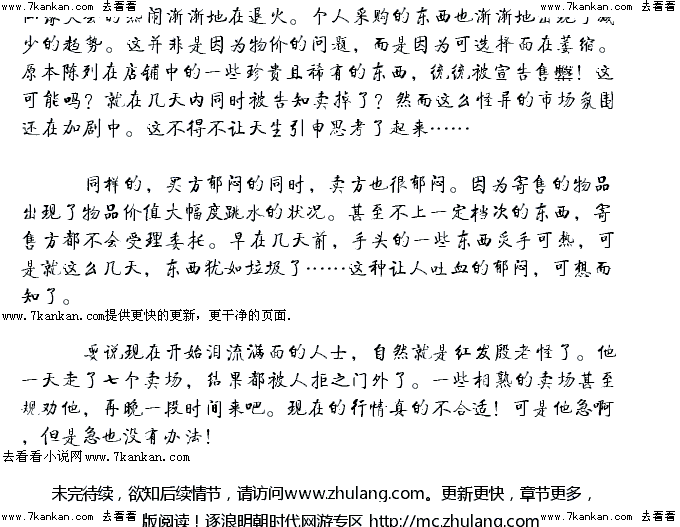 www.7kankan.com 去看看 www.7kankan.com 去看看 www.7kankan.com 去看看
的热闹渐渐地在退火。个人采购的东西也渐渐地出现了减
少的趋势。这并非是因为物价的问题，而是因为可选择而在萎缩。
原本陈列在店铺中的一些珍贵且稀有的东西，统统被宣告售罄！这
可能吗？就在几天内同时被告知卖掉了？然而这么怪异的市场氛围
还在加剧中。这不得不让天生引申思考了起来……
同样的，买方郁闷的同时，卖方也很郁闷。因为寄售的物品
出现了物品价值大幅度跳水的状况。甚至不上一定档次的东西，寄
售方都不会受理委托。早在几天前，手头的一些东西炙手可热，可
是就这么几天，东西犹如垃圾了……这种让人吐血的郁闷，可想而
知了。
www.7kankan.com提供更快的更新，更干净的页面.
要说现在开始泪流满面的人士，自然就是红发殷老怪了。他
一天走了七个卖场，结果都被人拒之门外了。一些相熟的卖场甚至
规劝他，再晚一段时间来吧。现在的行情真的不合适！可是他急啊
，但是急也没有办法！
去看看小说网www.7kankan.com
未完待续，欲知后续情节，请访问www.zhulang.com。更新更快，章节更多，
版阅读！逐浪明朝时代网游专区 http://mc.zhulang.com/
www.7kankan.com 去看看 www.7kankan.com 去看看 www.7kankan.com 去看看